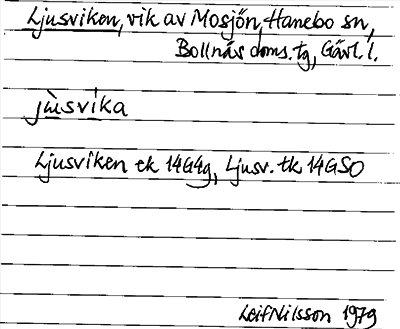 Ljusviken, vik av Mosjön, Hanebo sn,
Bollnäs doms. tg, Gävl. l.
jùsvika
Ljusviken ek 14G4g, Ljusv. tk 14GSO
Leif Nilsson 1979